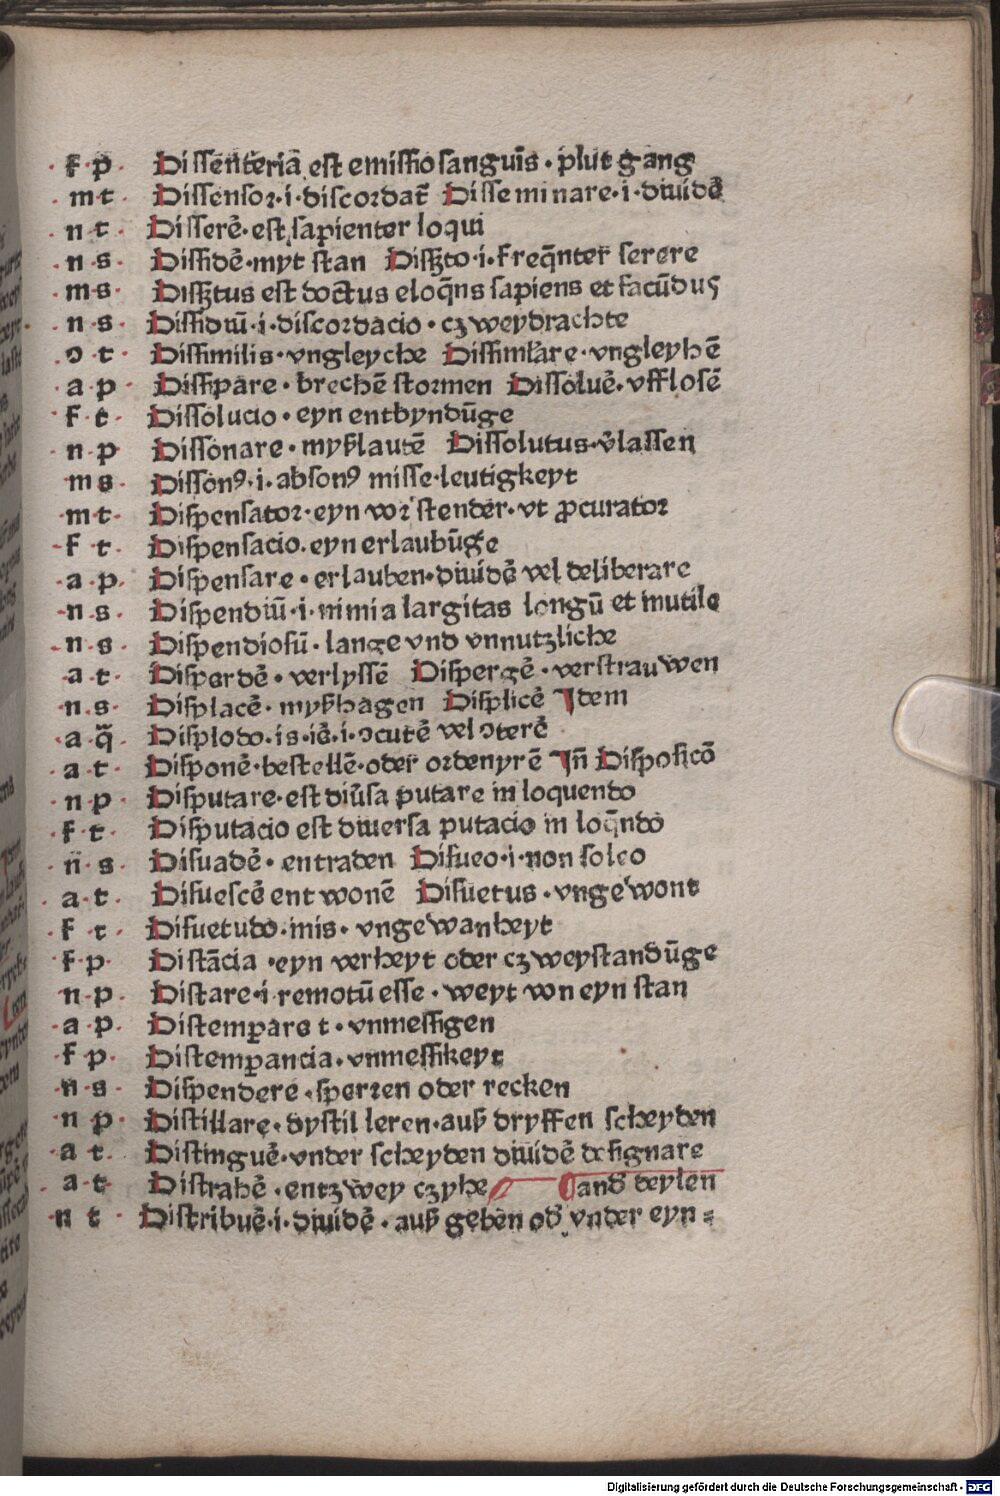 · f · p · Dissenteria est emissio sanguīs · plut gang
· m t · Dissensor · i · discordat̄ Disseminare · i · diuidē
· n t · Disserē · est sapienter loqui
· n s · Dissidē · myt stan Disꝫto · i · freq̄nter serere
· m s · Disꝫtus est doctus eloq̄ns sapiens et facūdus
· n s · Dissidiū · i · discordacio · czweydrachte
· ꝯ t · Dissimilis · vngleyche Dissimĺare · vngleyhē
· a p · Dissipare · brechē stormen Dissoluē · vfflosē
· f t · Dissolucio · eyn entbyndūge
· n p Dissonare · myßlautē Dissolutus · v̄lassen
m s · Disson⁹ · i · abson⁹ misse leutigkeyt
· m t · Dispensator · eyn vor stender · vt ꝓcurator
· f t · Dispensacio · eyn erlaubūge
· a p · Dispensare · erlauben · diuidē vel deliberare
· n s · Dispendiū · i · nimia largitas longū et inutile
· n s · Dispendiosū · lange vnd vnnutzliche
· a t · Disperdē · verlyssē Dispergē · verstrauwen
· n s · Displacē · myßhagen Displicē Idem
· a q̄ · Displodo · is · iē · i · ꝯcutē vel ꝯterē
· a t · Disponē · bestellē · oder ordenyrē Iñ Disposicō
· n p · Disputare · est diūsa putare in loquendo
· f t · Disputacio est diuersa putacio in loq̄ndo
· n s · Disuadē · entraden Disueo · i · non soleo
· a t · Disuescē ent wonē Disuetus · vngewont
· f t · Disuetudo · inis · vngewanheyt
· f p · Distācia · eyn verheyt oder czweystandūge
· n p · Distare · i remotū esse · weyt von eyn stan
· a p · Distemꝑare t · vnmessigen
f p · Distemꝑancia · vnmessikeyt
· n s · Dispendere · sperren oder recken
· n p · Distillare · dystilleren · auß dryffen scheyden
· a t · Distinguē · vnder scheyden diuidē designare
· a t Distrahē · entzwey czyhe and̄ deylen
· n t · Distribuē · i · diuidē · auß geben od̄ vnder eyn ⸗
Digitalisierung gefördert durch die Deutsche Forschungsgemeinschaft · DFG